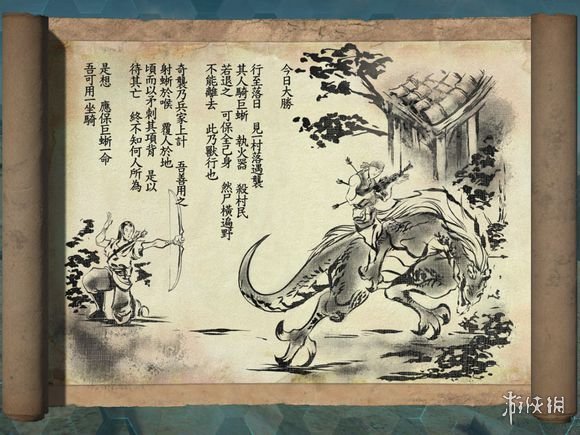 今日大勝
行至落日 見一村落遇襲
其人騎巨蜥 執火器 殺村民
若退之 可保全己身 然尸橫遍野
不能離去 此乃獸行也
奇襲乃兵家上計 吾喜用之
射蜥於喉 覆人於地
頃而以矛刺其項背 是以
待其亡 終不知何人所為
是想 應保巨蜥一命
吾可用一坐騎
游侠网